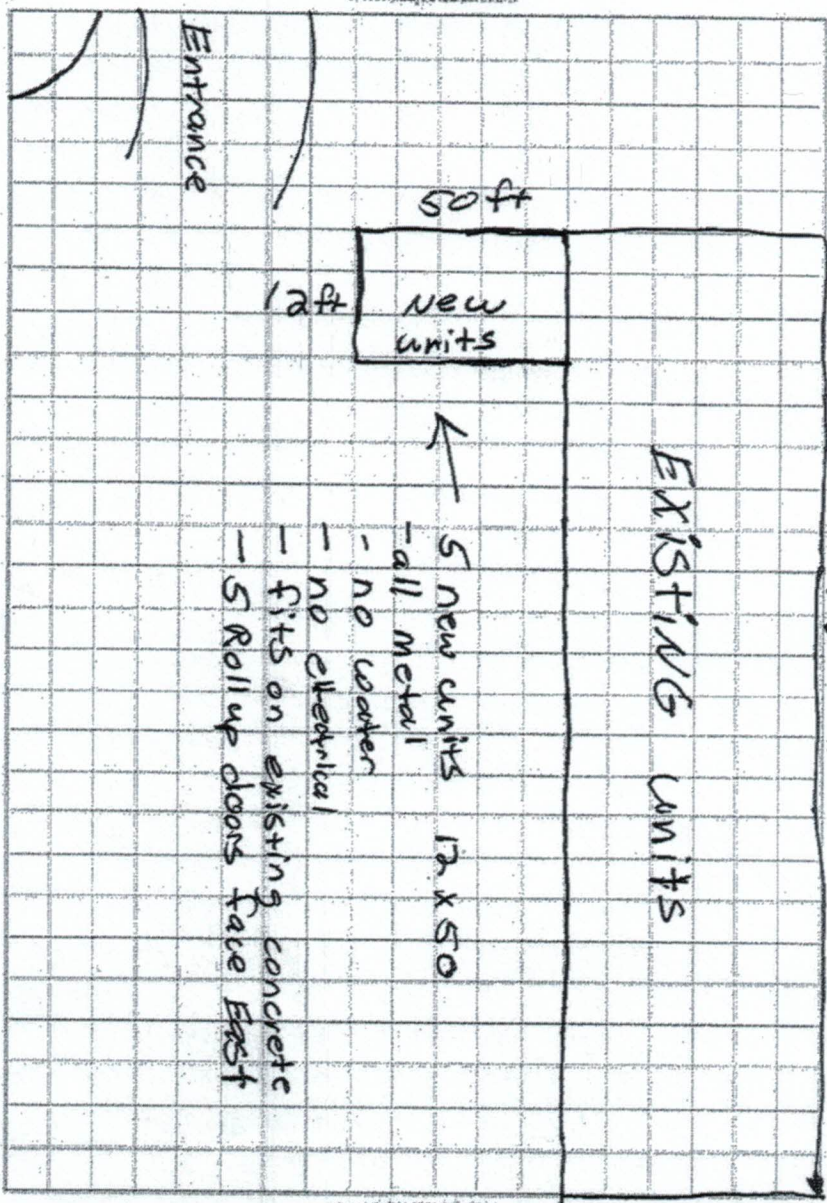 Entrance
50 ft
12 ft
New
units
EXISTING units
5 new units 12 x 50
- all metal
- no water
- no electrical
- fits on existing concrete
- 5 Roll up doors face East